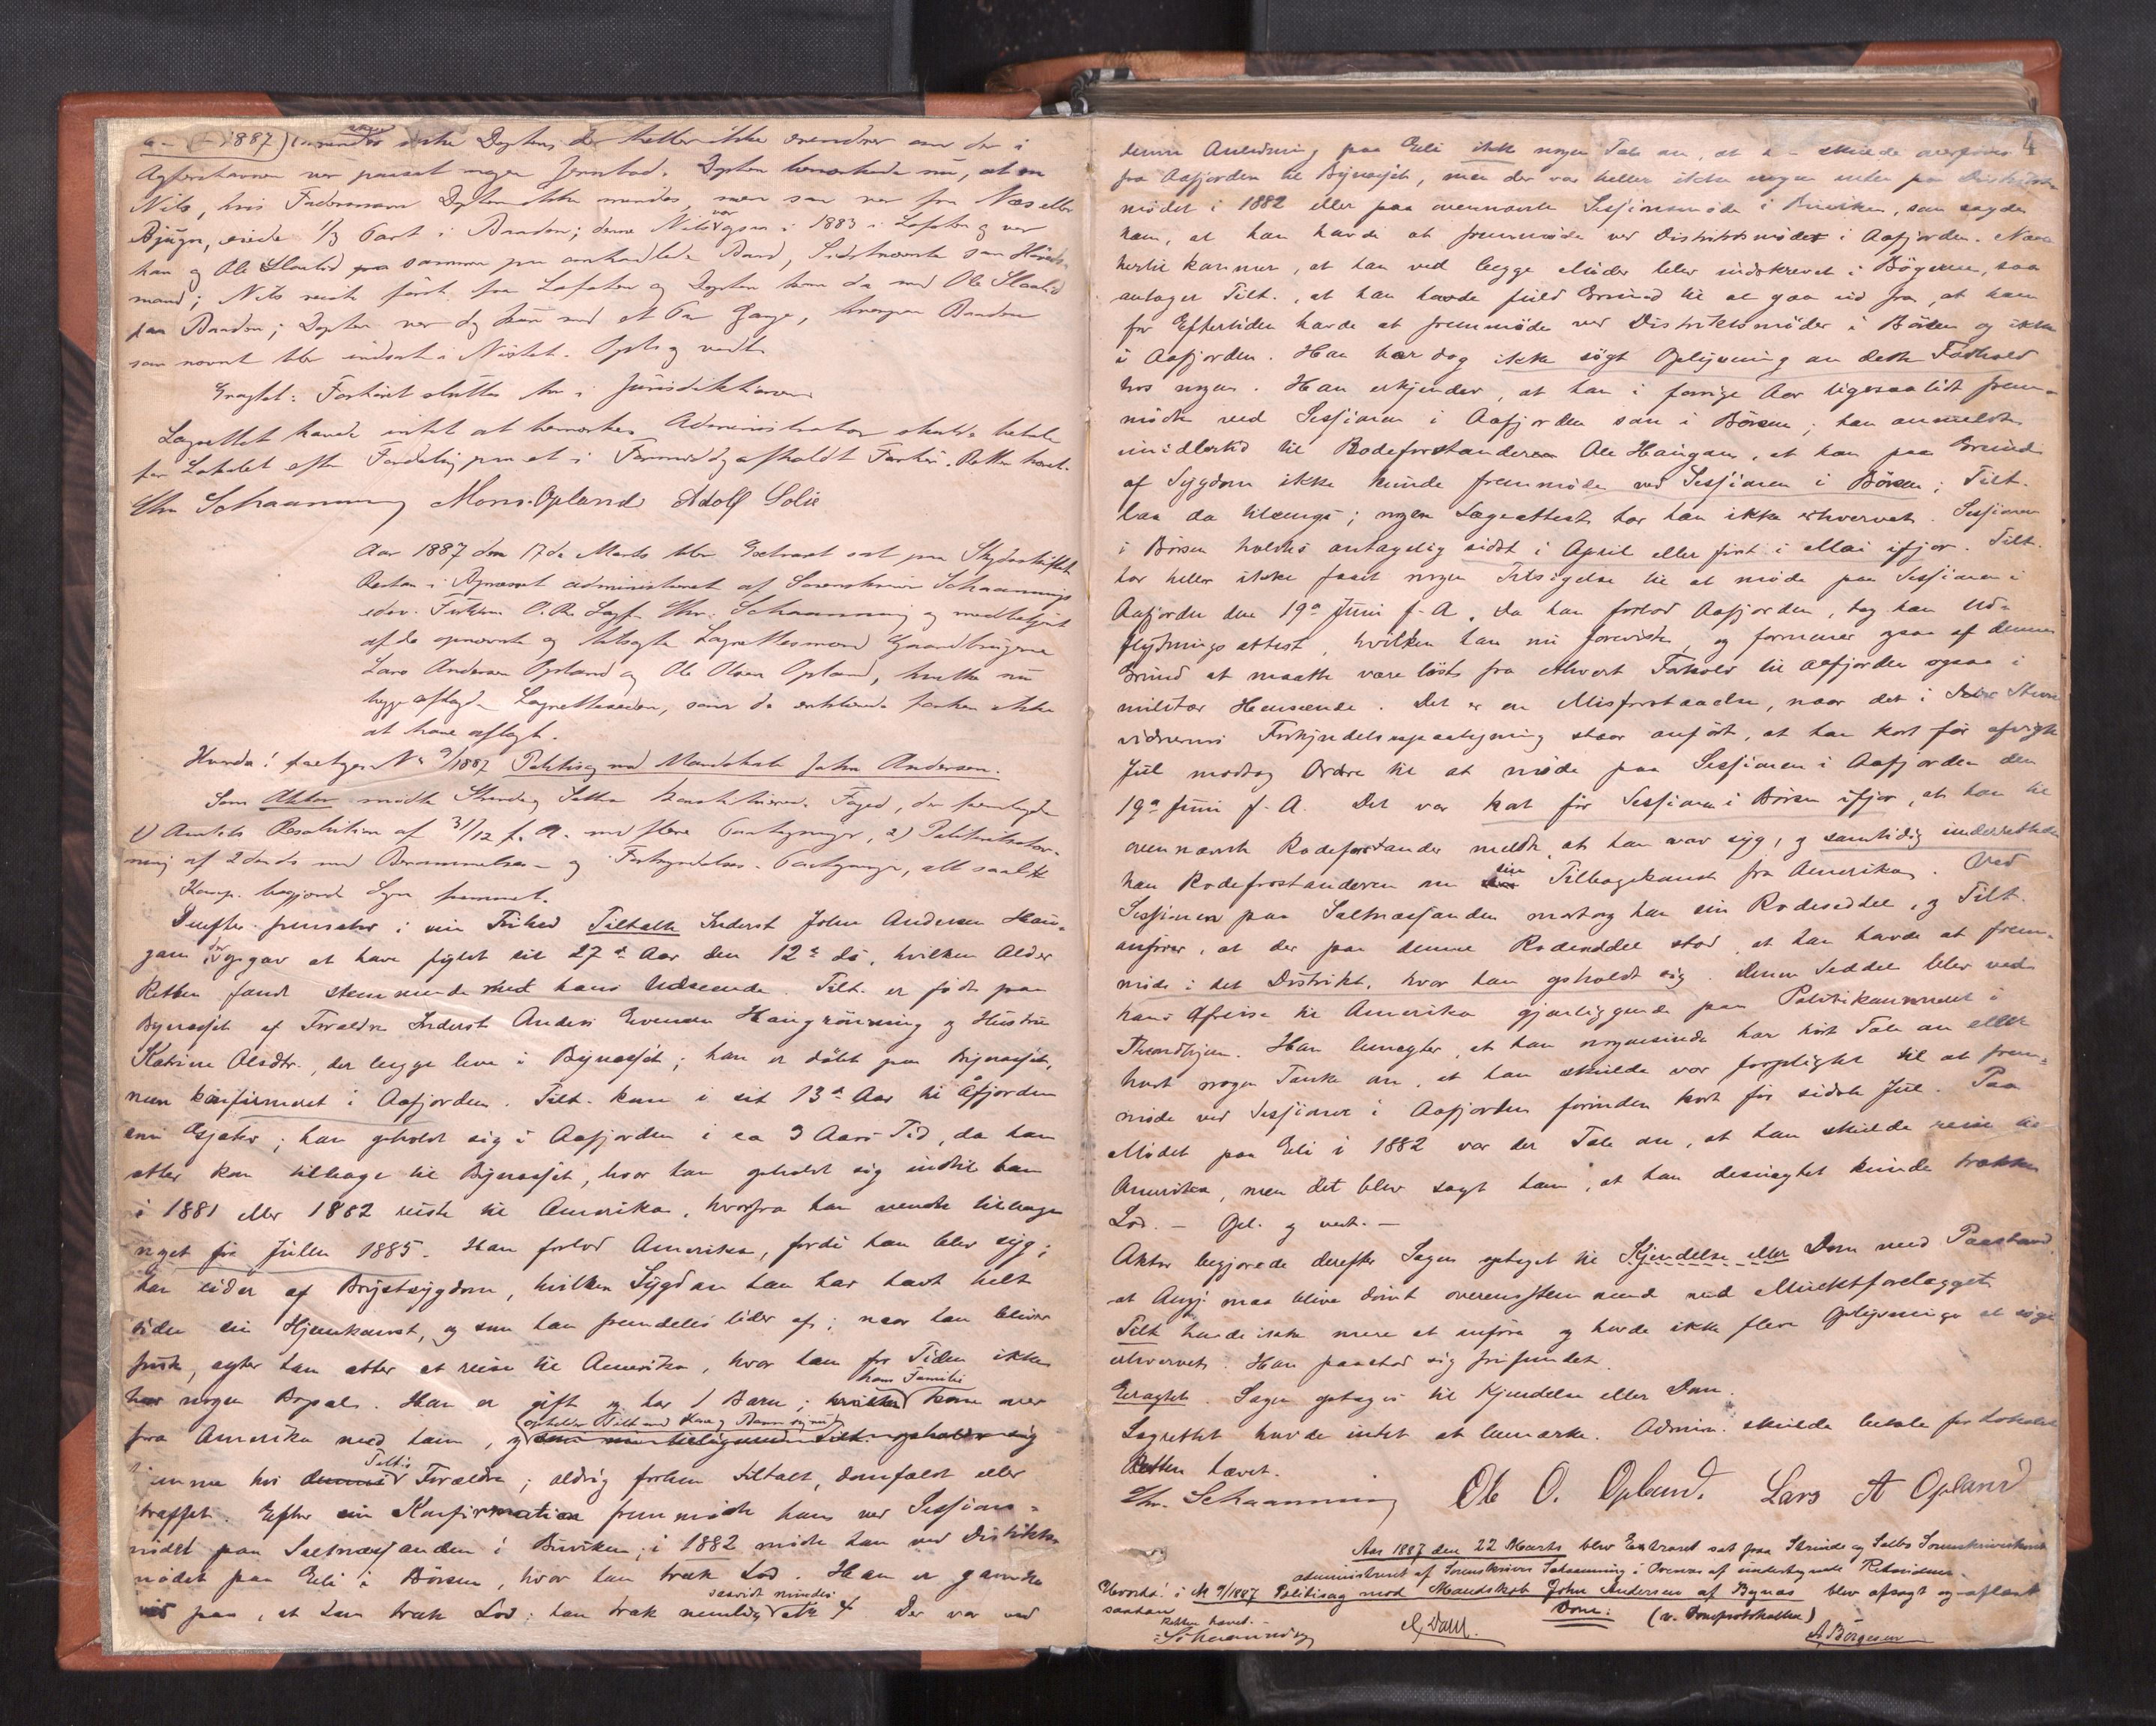 ikke Dopten, der heller ikke erindrer om der i
Agterstavnen var passet nogen Jernstad. Dopten bemærkede nu, at en
Nils, hvis Fadersnavn Dopten ikke mindes, men som var fra Næs eller
Bjugn, eiede 1/3 Part i Baaden; denne Nils var ogsaa i 1883 i Lofoten og var
han og Ole Slaatid sammen paa omhandlede Baad, Sidstnævnte som Höveds-
mand; Nils reiste först fra Lofoten og Dopten kom da med Ole Slaatid
paa Baaden; Dopten var dog kun med et Par Gange, hvorpaa Baaden
som nævnt blev indsat i Nöstet. Opl. og vedt.
Eragtet: Forhöret sluttes her i Jurisdiktionen
Lagrettet havde intet at bemærke. Administrator skulde betale
for Lokalet efter Fordeling paa et i Formiddag afholdt Forhör. Retten hævet.
Chr Schaanning Mons. Opland Adolf Solie
Aar 1887 den 17de Marts blev Extraret sat paa Skydsskiftet
Rostan i Bynæsset administreret af Sorenskriver Schaannings
edsv. Fuldm. O.R. Sagf. Chr. Schaanning og medbetjent
af de opnævnte og tilsagte Lagrettesmænd Gaardbrugerne
Lars Andersen Opland og Ole Olsen Opland, hvilke nu
begge aflagde Lagretteseden, som de erklærede forhen ikke
at have aflagt.
Hvorda! foretoges No 9/1887 Politisag mod Mandskab John Andersen.
Som Aktor mödte Strinda og Selbu konstituerede Foged, der fremlagde
1) Amtets Resolution af 31/12 f. A. med flere Paategninger, 2)
ning af 2den ds med Berammelses- og Forkyndelses-Paategninger, alt saal.
Komp. begjærede Sagen fremmet.
Derefter fremstod i sin Frihed Tiltalte Inderst John Andersen Hau-
gan, der opgav at have fyldt sit 27de Aar den 12te ds, hvilken Alder
Retten fandt stemmende med hans Udseende. Tilt. er födt paa
Bynesset af Forældre Inderst Anders Evensen Haugrönning og Hustru
Katrine Olsdtr., der begge leve i Bynesset; han er döbt paa Bynesset,
men konfirmeret i Aafjorden. Tilt. kom i sit 13de Aar til Åfjorden
som Gjæter; han opholdt sig i Aafjorden i ca 3 Aars Tid, da han
atter kom tilbage til Bynesset, hvor han opholdt sig indtil han
i 1881 eller 1882 reiste til Amerika, hvorfra han vendte tilbage
noget før Julen 1885. Han forlod Amerika, fordi han blev syg;
han lider af Brystsygdom, hvilken Sygdom han har havt helt
siden sin Hjemkomst, og som han fremdeles lider af; naar han bliver
frisk, agter han atter at reise til Amerika, hvor han for Tiden ikke
har nogen Bopæl. Han er gift og har 1 Barn; hans Familie kom over
fra Amerika med ham, og opholder Tilt. med Kone og Barn sig nu
hjemme hos Tilt.s Forældre; aldrig forhen tiltalt, domfældt eller
straffet. Efter sin Konfirmation fremmödte han ved Sessions-
mödet paa Saltnæssanden i Buviken; i 1882 mödte han ved Distrikts-
mödet paa Eli i Börsen, hvor han trak Lod. Han er ganske
vis paa, at han trak Lod; han trak nemlig saavidt mindes No 4. Der var ved
4
denne Anledning paa Eli ikke nogen Tale om, at han skulde overföres
fra Aafjorden til Bynesset, men der var heller ikke nogen enten paa Distrikts-
mödet i 1882 eller paa ovennævnte Sessionsmöde i Buviken, som sagde
ham, at han havde at fremmöde ved Distriktsmödet i Aafjorden. Naar
hertil kommer, at han ved begge Möder blev indskrevet i Bögerne, saa
antager Tilt., at han havde fuld Grund til at gaa ud fra, at han
for Eftertiden havde at fremmöde ved Distriktsmöder i Börsen og ikke
i Aafjorden. Han har dog ikke sögt Oplysning om dette Forhold
hos nogen. Han erkjender, at han i forrige Aar ligesaalidt frem-
mödte ved Sessionen i Aafjorden som i Börsen; han anmeldte
imidlertid til Rodeforstanderen Ole Haugan, at han paa Grund
af Sygdom ikke kunde fremmöde ved Sessionen i Börsen; Tilt.
laa da tilsengs; nogen Lægeattest har han ikke erhvervet. Sessionen
i Börsen holdtes antagelig sidst i April eller först i Mai ifjor. Tilt.
har heller ikke faaet nogen Tilsigelse til at møde paa Sessionen i
Aafjorden den 19de Juni f. A. Da han forlod Aafjorden, tog han Ud-
flytningsattest, hvilken han nu foreviste, og formener ogsaa af denne
Grund at maatte være löst fra ethvert Forhold til Aafjorden ogsaa i
militær Henseende. Det er en Misforstaaelse, naar det i Stevne-
vidnernes Forkyndelsespaategning staar anfört, at han kort för afvigte
Jul modtog Ordre til at møde paa Sessionen i Aafjorden den
19de Juni f. A. Det var kort för Sessionen i Börsen ifjor, at han til
ovennævnte Rodeforstander meldte, at han var syg, og samtidig underrettede
han Rodeforstanderen om sin Tilbagekomst fra Amerika. Ved
Sessionen paa Saltnæssanden modtog han sin Rodeseddel, og Tilt.
anförer, at der paa denne Rodeseddel stod, at han havde at frem-
möde i det Distrikt, hvor han opholdt sig. Denne Seddel blev ved
hans Afreise til Amerika gjenliggende paa Politikammeret i
Throndhjem. Han benegter, at han nogensinde har hört Tale om eller
havt nogen Tanke om, at han skulde var forpligtet til at frem-
möde ved Sessioner i Aafjorden forinden kort för sidste Jul. Paa
Mödet paa Eli i 1882 var der Tale om, at han skulde reise til
Amerika, men det blev sagt ham, at han desuagtet kunde trække
Lod. — Opl. og vedt. —
Aktor begjærede derefter Sagen optaget til Kjendelse eller Dom med Paastand
at Angj. maa blive dömt overensstemmende med Mulktforelægget
Tilt. havde ikke mere at anföre og havde ikke flere Oplysninger at söge
erhvervet. Han paastod sig frifundet.
Eragtet. Sagen optages til Kjendelse eller Dom.
Lagrettet havde intet at bemærke. Admin. skulde betale for Lokalet
Retten hævet.
Chr. Schaanning Ole O. Opland. Lars A Opland
Aar 1887 den 22 Marts blev Extraret sat paa Strinde og Selbo Sorenskriverkontor
administreret af Sorenskriver Schaanning i Overvær af undertegnede Retsvidner.
Hvorda! i No 9/1887 Politisag mod Mandskab John Andersen af Bynæs blev afsagt og aflæst
saadan Dom: (v. Domsprotokollen)
Retten hævet. —
Schaanning Dahl. A Börgesen